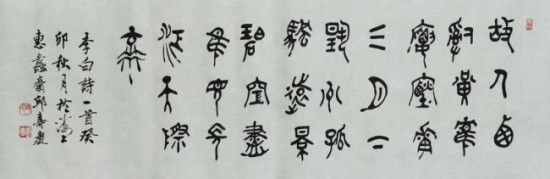 故人西
辭黃鶴
樓煙花
三月下
揚州孤
帆遠景
碧空盡
唯見長
江天際
流
李白詩一首癸
卯秋月於海上